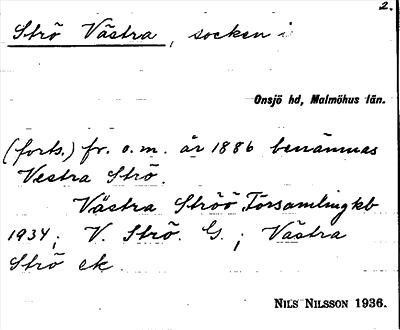 2.
Strö Västra, socken i
Onsjö hd, Malmöhus län.
(forts.) fr. o. m. år 1886 benämnas
Vestra Strö.
Västra Ströö Församlingkb
1934; V. Strö. G.; Västra
Strö ek
NILS NILSSON 1936.